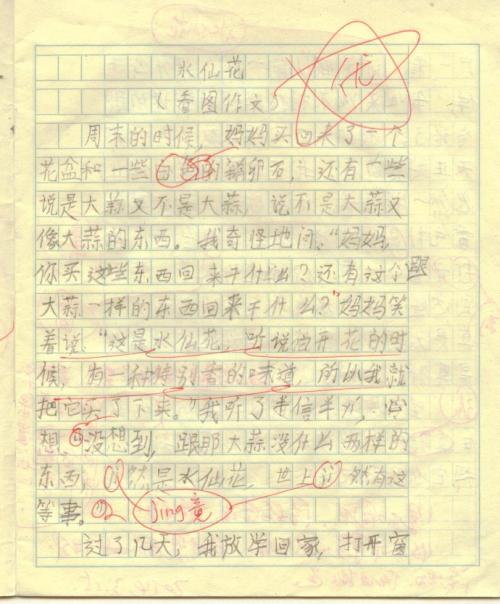 水仙花
优
（看图作文）
周末的时候，妈妈买回来了一个
花盆和一些白色的鹅卵石，还有一些
说是大蒜又不是大蒜，说不是大蒜又
像大蒜的东西。我奇怪地问：“妈妈，
你买这些东西回来干什么？还有这个跟
大蒜一样的东西回来干什么？”妈妈笑
着说：“这是水仙花，听说它开花的时
候，有一种特别香的味道，所以我就
把它买了下来。”我听了半信半
想：没想到，跟那大蒜没什么两样的
东西，然是水仙花，世上 然有这
等事。
jing竟
过了几天，我放学回家，打开窗